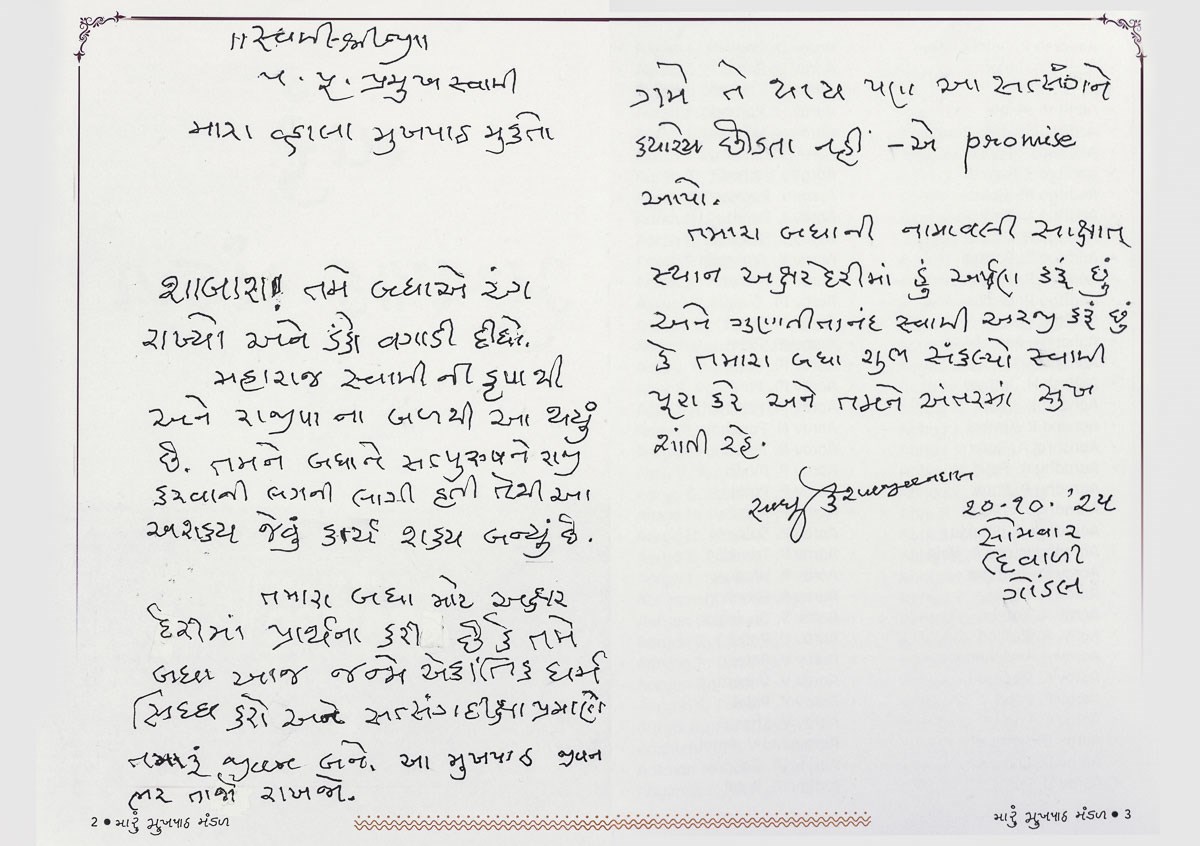 ॥ સ્વામી-શ્રીજી ॥
પ. પૂ. પ્રમુખ સ્વામી
મારા વ્હાલા મુખપાઠ મુક્તો
શાબાશ! તમે બધાએ રંગ
રાખ્યો અને ડંકો વગાડી દીધો.
મહારાજ સ્વામી ની કૃપા થી
અને રાજીપા ના બળથી આ થયું
છે. તમને બધાને સત્પુરુષને રાજી
કરવાની લગની લાગી હતી તેથી આ
અશક્ય જેવું કાર્ય શક્ય બન્યું છે.
તમારા બધા માટે અક્ષર
દેરીમાં પ્રાર્થના કરી છે કે તમે
બધા આજ જન્મે એકાંતિક ધર્મ
સિધ્ધ કરો અને સત્સંગદીક્ષા પ્રમાણે
તમારૂં જીવન બને. આ મુખપાઠ જીવન
ભર તાજો રાખજો.
2 • મારું મુખપાઠ મંડળ
ગમે તે થાય પણ આ સત્સંગને
ક્યારેય છોડતા નહીં - એ promise
આપો.
તમારા બધાની નામાવલી સાક્ષાત્
સ્થાન અક્ષરદેરીમાં હું અર્પણ કરૂં છું
અને ગુણાતીતાનંદ સ્વામી અરજી કરૂં છું
કે તમારા બધા શુભ સંકલ્પો સ્વામી
પૂરા કરે અને તમને અંતરમાં સુખ
શાંતી રહે.
સાધુ કેશવજીવનદાસ
૨૦.૧૦.'૨૫
સોમવાર
દિવાળી
ગોંડલ
મારું મુખપાઠ મંડળ • 3